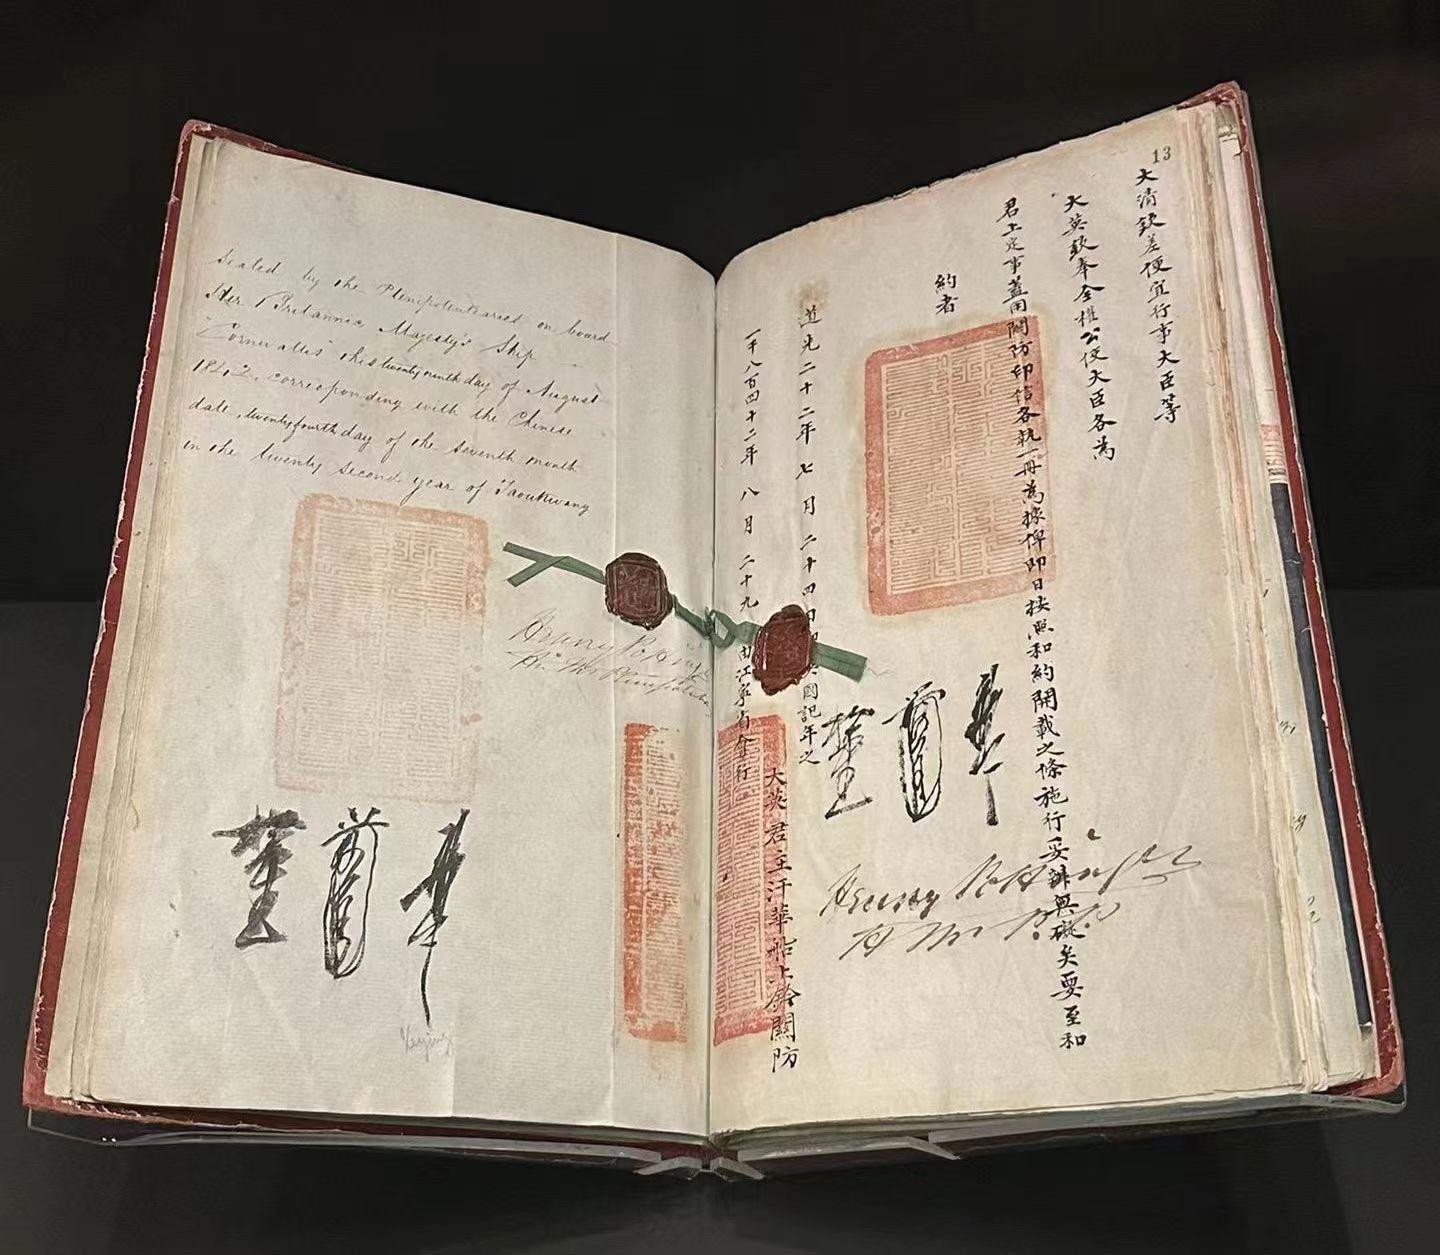 Sealed by the Plenipotentiaries on board
Her Britannic Majesty's Ship
"Cornwallis" this twenty ninth day of August
1842, corresponding with the Chinese
date, twenty fourth day of the seventh month
in the twenty second year of Taoukwang
Henry Pottinger
13
大清欽差便宜行事大臣等
大英欽奉全權公使大臣各為
君上定事蓋用關防印信各執一冊為據俾即日按照和約開載之條施行妥辦無礙矣要至和
約者
道光二十二年七月二十四日即英國記年之
一千八百四十二年八月二十九日由江寧省會行
大英君主汗華船上鈐關防
Henry Pottinger